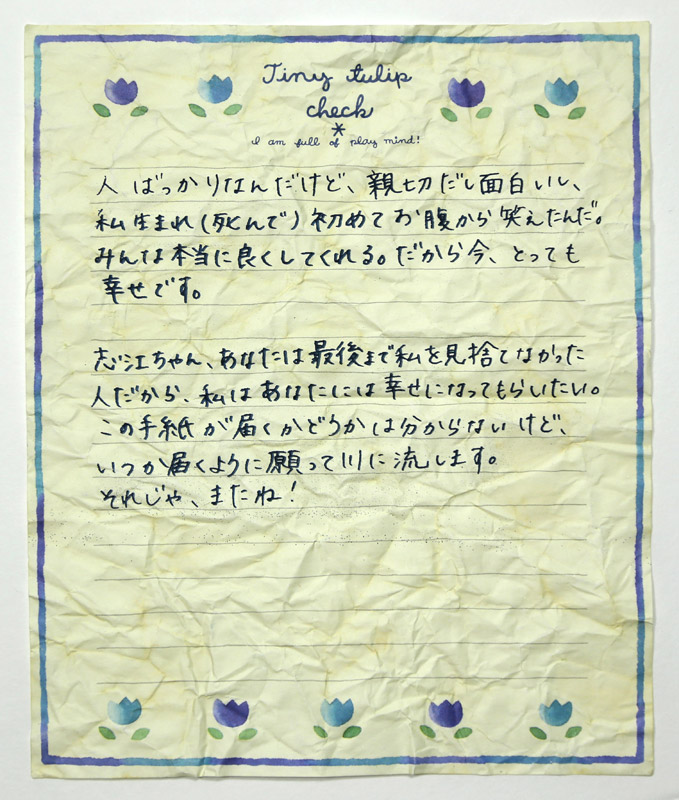 Tiny tulip
check
*
I am full of play mind!
人ばっかりなんだけど、親切だし面白いし、
私生まれ(死んで)初めてお腹から笑えたんだ。
みんな本当に良くしてくれる。だから今、とっても
幸せです。
志江ちゃん、あなたは最後まで私を見捨てなかった
人だから、私はあなたには幸せになってもらいたい。
この手紙が届くかどうかは分からないけど、
いつか届くように願って川に流します。
それじゃ、またね!